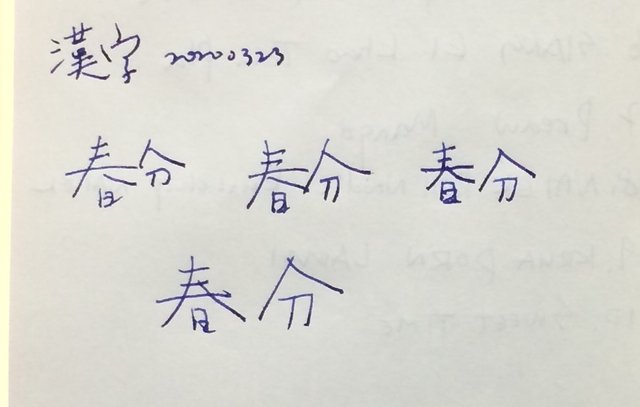 漢字 20200323
春分 春分 春分
春分